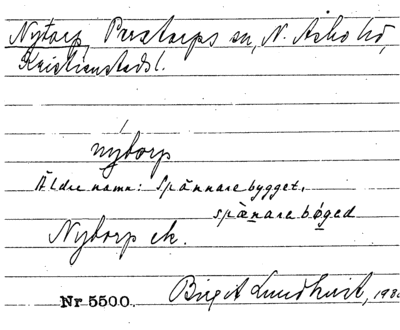 Nytorp, Perstorps sn, N. Åsbo hd,
Kristianstads l.
nýtorp
Äldre namn: Spännarebygget,
spænarebøged
Nytorp ek.
Nr 5500. Birgit Lundkvist, 193